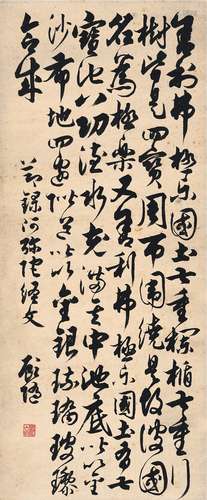 舍利弗極樂國土七重欄楯七重行
樹皆是四寶周帀圍繞是故彼國
名為極樂又舍利弗極樂國土有七
寶池八功德水充滿其中池底以金
沙布地四邊階道以金銀琉璃玻瓈
合成
節錄阿彌陀經文